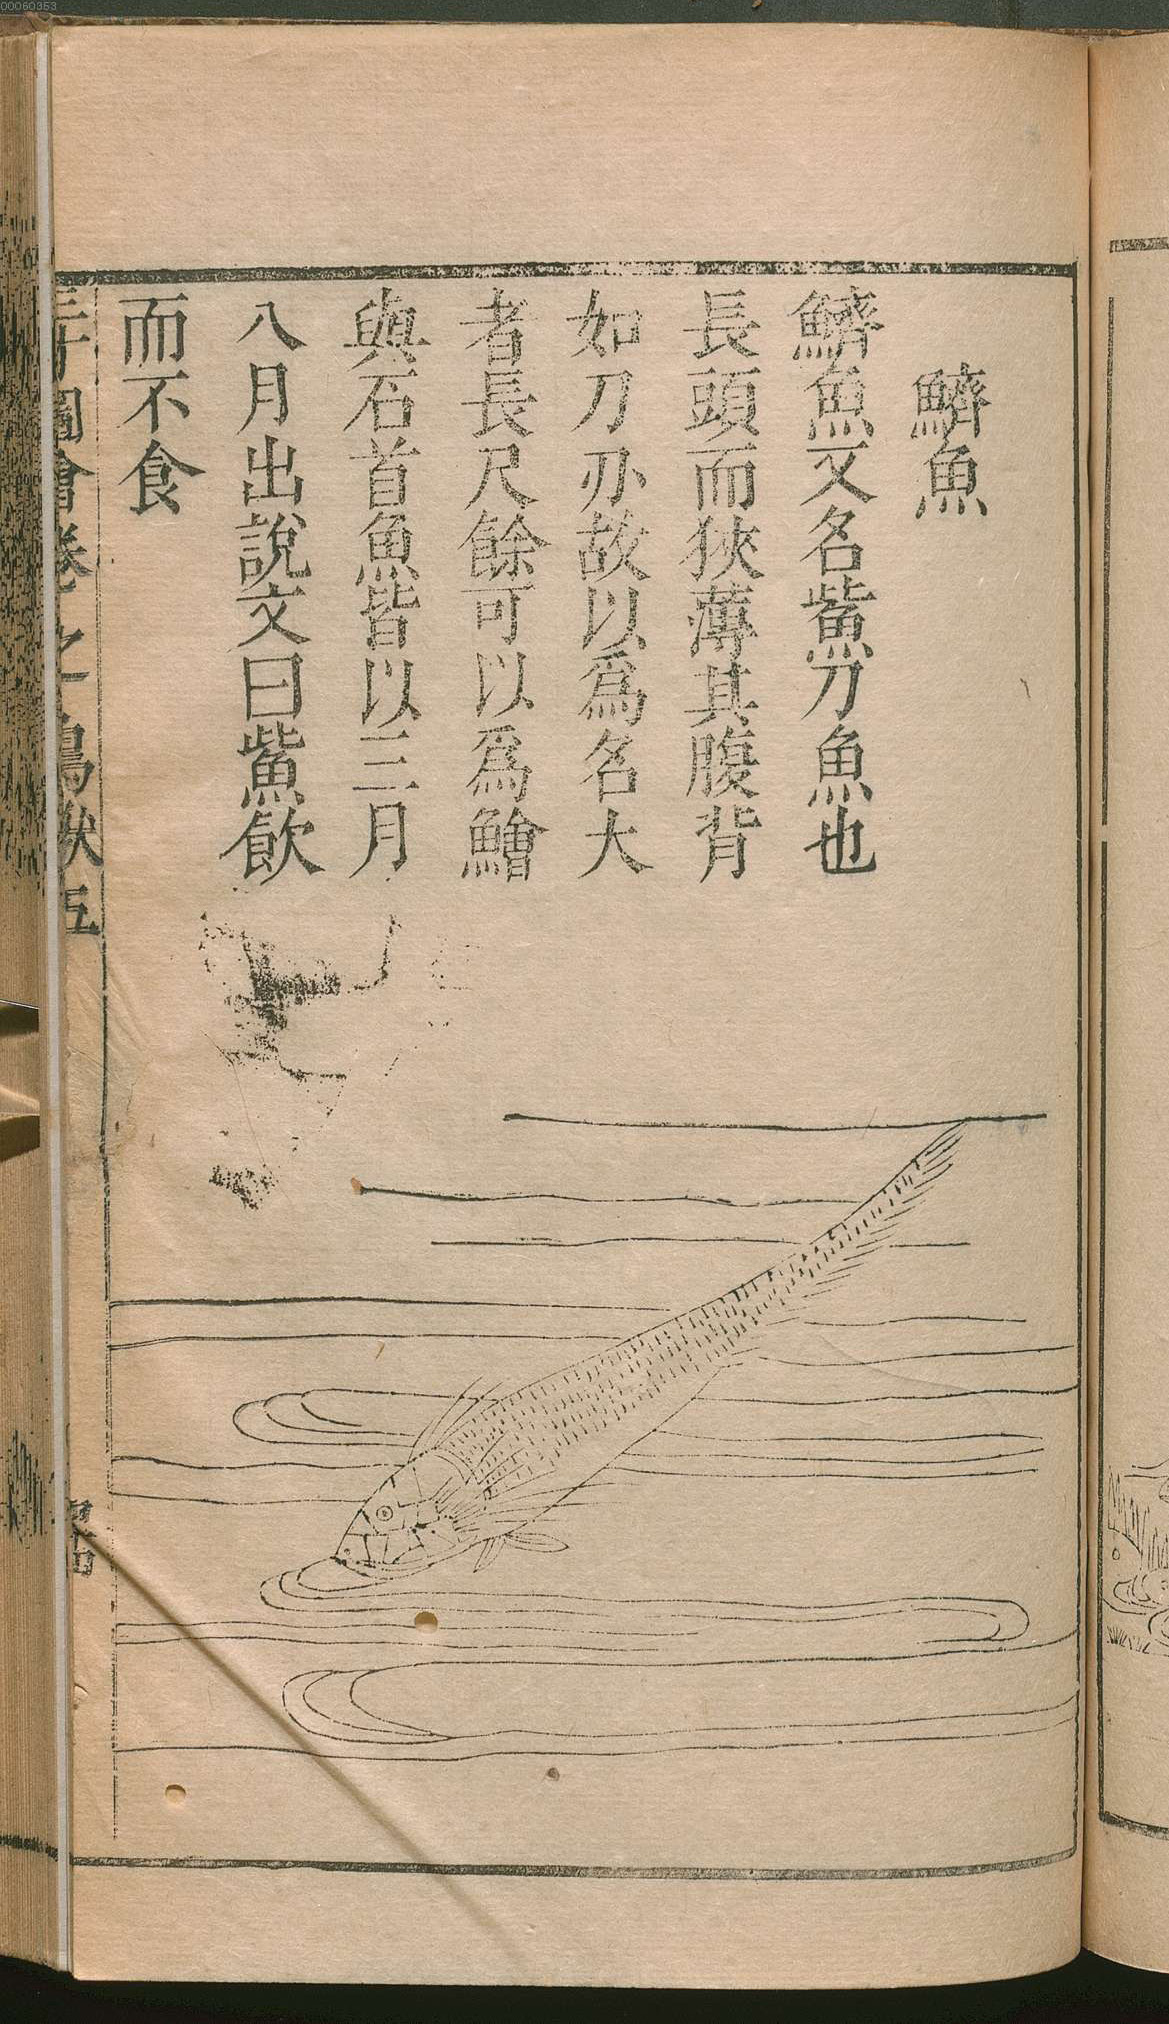 00060353
鱭魚
鱭魚又名鮆刀魚也
長頭而狹薄其腹背
如刀刅故以爲名大
者長尺餘可以爲鱠
與石首魚皆以三月
八月出說文曰鮆飲
而不食
三才圖會卷之鳥獸五